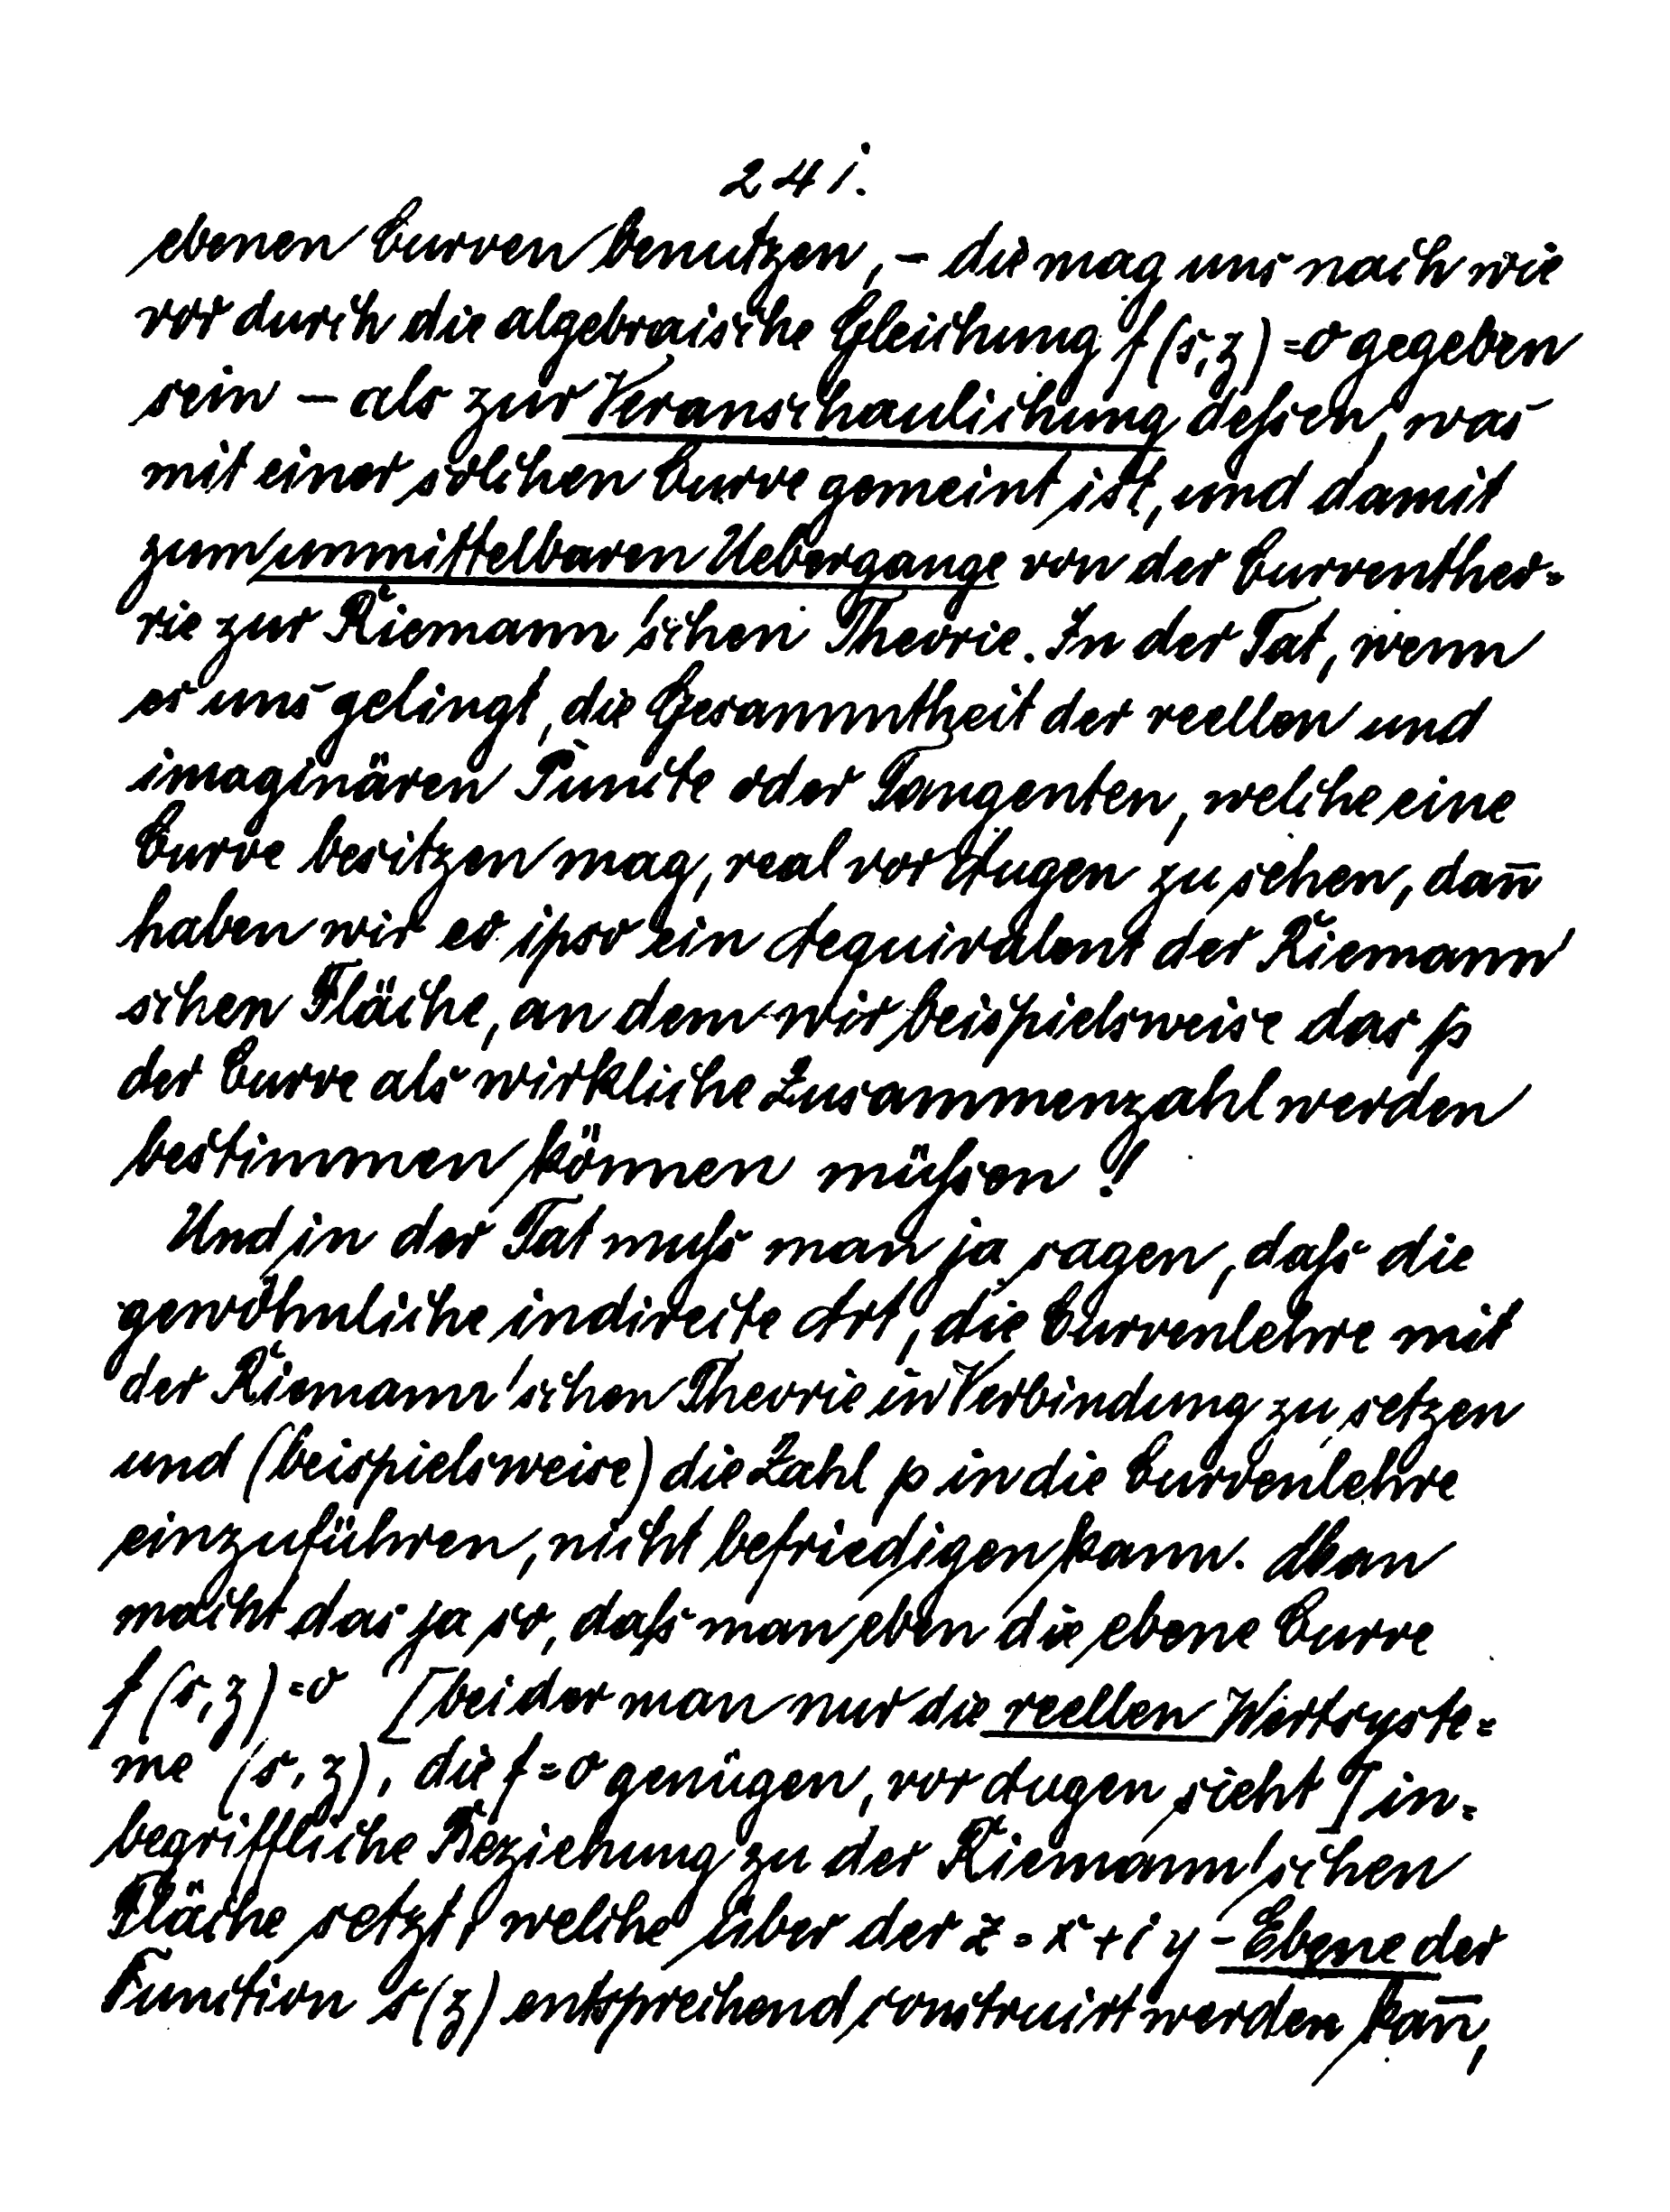 241.
ebenen Curven benutzen, – die mag uns nach wie
vor durch die algebraische Gleichung f(s,z)=0 gegeben
sein – als zur Veranschaulichung dessen, was
mit einer solchen Curve gemeint ist, und damit
zum unmittelbaren Uebergange von der Curventheo=
rie zur Riemann'schen Theorie. In der Tat, wenn
es uns gelingt, die Gesammtheit der reellen und
imaginären Puncte oder Tangenten, welche eine
Curve besitzen mag, real vor Augen zu sehen, dan̄
haben wir eo ipso ein Aequivalent der Riemann'
schen Fläche, an dem wir beispielsweise das p
der Curve als wirkliche Zusammenzahl werden
bestimmen können müssen!
Und in der Tat muss man ja sagen, dass die
gewöhnliche indirecte Art, die Curvenlehre mit
der Riemann'schen Theorie in Verbindung zu setzen
und (beispielsweise) die Zahl p in die Curvenlehre
einzuführen, nicht befriedigen kann. Man
macht das ja so, dass man eben die ebene Curve
f(s,z)=0 [bei der man nur die reellen Wertsyste=
me (s,z), die f=0 genügen, vor Augen sieht] in=
begriffliche Beziehung zu der Riemann'schen
Fläche setzt, welche über der z=x+iy-Ebene der
Function s(z) entsprechend construirt werden kan̄,